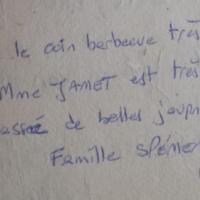 le coin barbecue très
Mme JAMET est très
passé de belles journ
Famille